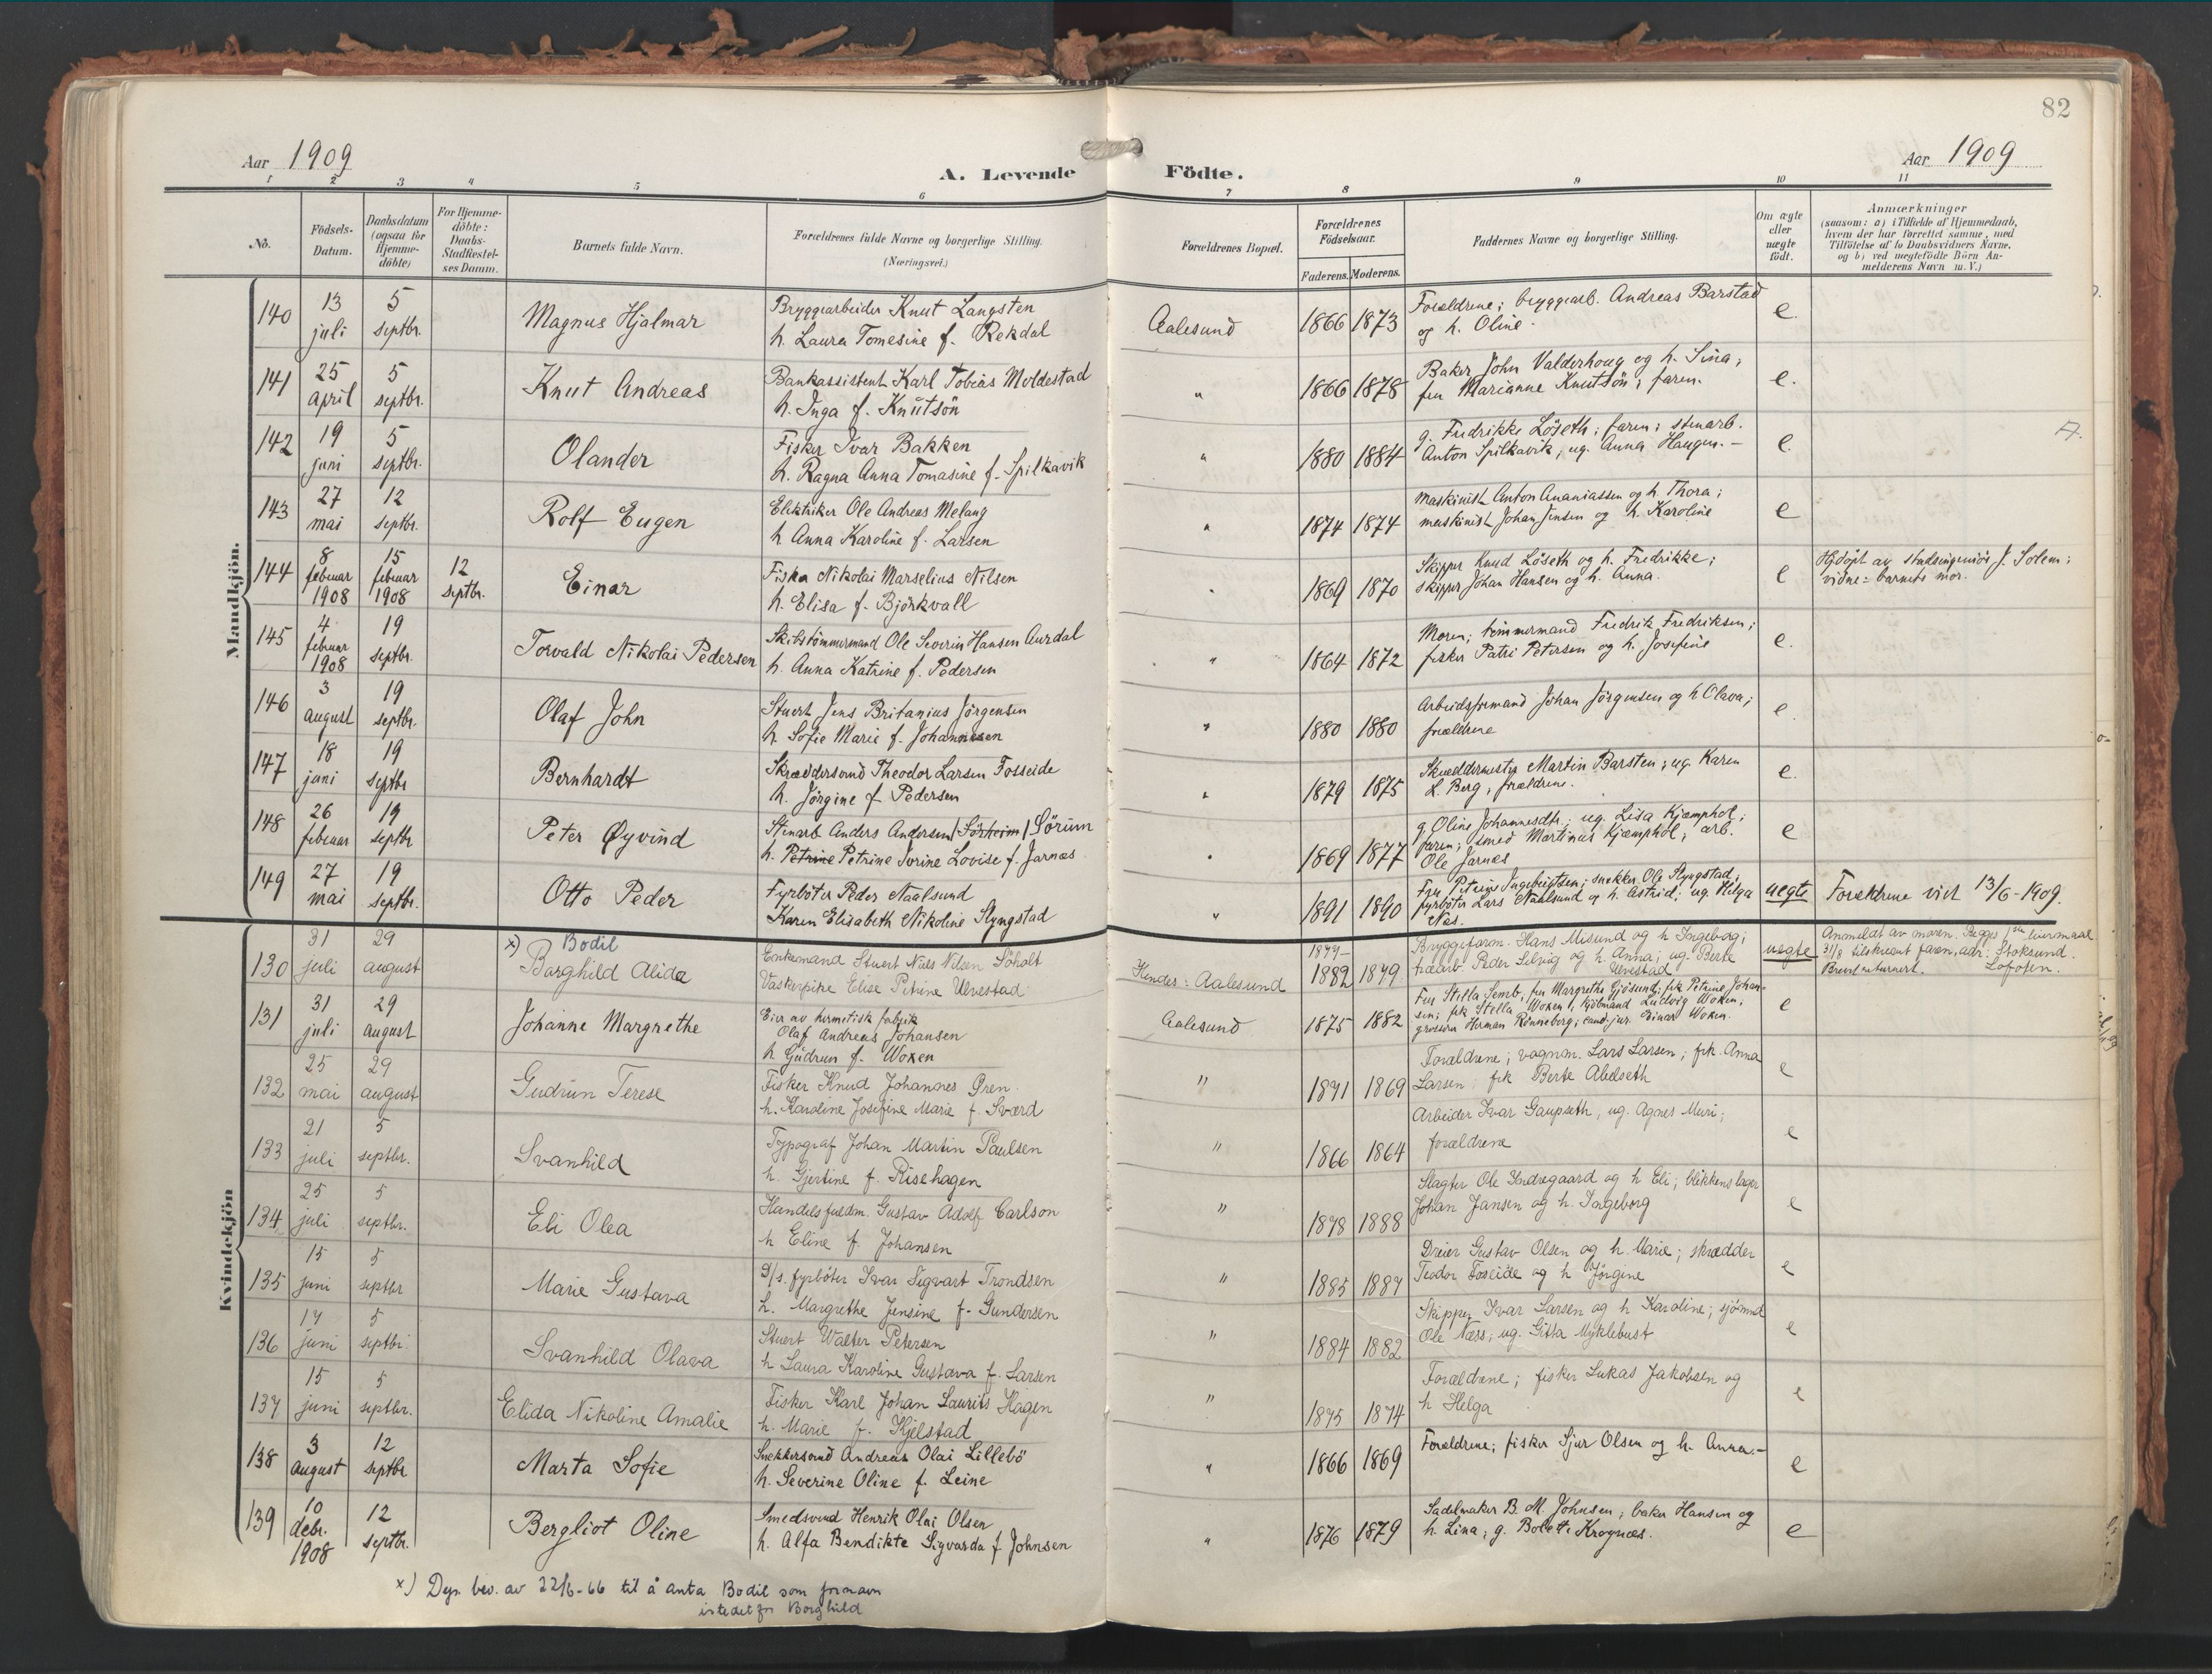 82
Aar 1909
A. Levende Födte.
Aar 1909
1 2 3 4 5 6 7 8 9 10 11
No.
Födsels-Datum.
Daabsdatum (ogsaa for Hjemme-döbte)
For Hjemme-döbte: Daabs-Stadfæstel-ses Datum.
Barnets fulde Navn.
Forældrenes fulde Navne og borgerlige Stilling.
(Næringsvei.)
Forældrenes Bopæl.
Forældrenes Födselsaar.
Faderens. Moderens.
Faddernes Navne og borgerlige Stilling.
Om ægte eller uægte födt.
Anmærkninger
(saasom: a) i Tilfælde af Hjemmedaab,
hvem der har forrettet samme, med
Tilföielse af to Daabsvidners Navne,
og b) ved uægtefödte Börn An-
melderens Navn m. V.)
Mandkjön.
140 13 juli 5 septbr. Magnus Hjalmar
Bryggearbeider Knut Langsten
h. Laura Tomesine f. Rekdal
Aalesund 1866 1873
Forældrene; bryggearb. Andreas Barstad
og h. Oline.
e.
141 25 april 5 septbr. Knut Andreas
Bankassistent Karl Tobias Moldestad
h. Inga f. Knutsön
" 1866 1878
Baker John Valderhaug og h. Sina;
fru Marianne Knutsön; faren.
e.
142 19 juni 5 septbr. Olander
Fisker Ivar Bakken
h. Ragna Anna Tomasine f. Spilkavik
" 1880 1884
g. Fredrikke Löseth; faren; stenarb.
Anton Spilkavik; ug. Anna Haugen.-
e.
143 27 mai 12 septbr. Rolf Eugen
Elektriker Ole Andreas Melang
h. Anna Karoline f. Larsen
" 1874 1874
maskinist Anton Ananiassen og h. Thora;
maskinist Johan Jensen og h. Karoline
e
144 8 februar 1908 15 februar 1908 12 septbr. Einar
Fisker Nikolai Marselius Nilsen
h. Elisa f. Björkvall
" 1869 1870
Skipper Knud Löseth og h. Fredrikke;
skipper Johan Hansen og h. Anna.
e
Hjdöpt av stadsingeniör J. Solem;
vidne: barnets mor.
145 4 februar 1908 19 septbr. Torvald Nikolai Pedersen
Skibstömmermand Ole Severin Hansen Aurdal
h. Anna Katrine f. Pedersen
" 1864 1872
Moren; tömmermand Fredrik Fredriksen;
fisker Patri Petersen og h. Josefine
e.
146 3 august 19 septbr. Olaf John
Stuert Jens Britanius Jörgensen
h. Sofie Marie f. Johannesen
" 1880 1880
Arbeidsformand Johan Jörgensen og h Olava;
forældrene
e.
147 18 juni 19 septbr Bernhardt
Skræddersvend Theodor Larsen Fosseide
h. Jörgine f Pedersen
" 1879 1875
Skræddermester Martin Barsten; ug. Karen
L. Berg, forældrene.
e.
148 26 februar 19 septbr Peter Øyvind
Stenarb Anders Andersen/Sörheim/Sörum
h. Petrine Petrine Ivrine Lovise f. Jarnæs
" 1869 1877
g. Oline Johannesdtr; ug. Lisa Kjæmphol;
faren; smed Martinus Kjæmphol; arb.
Ole Jarnæs
e
149 27 mai 19 septbr. Otto Peder
Fyrböter Peder Naalsund
Karen Elisabeth Nikoline Slyngstad
" 1891 1890
Fru Petrine Ingebrigtsen; snekker Ole Slyngstad;
fyrböter Lars Nahlsund og h. Astrid; ug. Helga
Næs.
uegte
Forældrene viet 13/6-1909.
Kvindekjön
130 31 juli 29 august x) Bodil
Borghild Alida
Enkemand Stuert Niels Nilsen Söholt
Vaskerpike Elise Petrine Ulvestad
Hendes: Aalesund 1877- 1882 1879
Bryggeform. Hans Misund og h Ingeborg;
træarb Peder Silvig og h. Anna; ug. Berte
Ulvestad
uegte
Anmeldt av moren. Begges 1ste leiermaal
31/8 tilskrevet faren, adr. Stoksund.
Brevet returnert. Lofoten.
131 31 juli 29 august Johanne Margrethe
Eier av hermetisk fabrik
Olaf Andreas Johansen
h Gudrun f. Woxen
Aalesund 1875 1882
Fru Stella Semb, fru Margrethe Gjösund; frk Petrine Johan-
sen; frk Stella Woxen; kjöbmand Ludvig Woxen;
grosserer Herman Rönneberg; cand. jur. Einar Woxen.
e
132 25 mai 29 august Gudrun Terese
Fisker Knud Johannes Gren
h. Karoline Josefine Marie f. Sværd
" 1871 1869
Forældrene; vognm. Lars Larsen; frk. Anna
Larsen; frk Berte Abelseth
e
133 21 juli 5 septbr. Svanhild
Typograf Johan Martin Paulsen
h. Gjertine f. Risehagen
" 1866 1864
Arbeider Ivar Gaupseth, ug. Agnes Muri;
forældrene
e
134 25 juli 5 septbr. Eli Olea
Handelsfuldm. Gustav Adolf Carlson
h Eline f. Johansen
" 1878 1888
Slagter Ole Indregaard og h Eli; blikkenslager
Johan Jansen og h. Ingeborg
e
135 15 juni 5 septbr Marie Gustava
D/s. fyrböter Ivar Sigvart Trondsen
h. Margrethe Jensine f. Gundersen
" 1885 1887
Dreier Gustav Olsen og h. Marie; skrædder
Teodor Foseide og h Jörgine
e
136 17 juni 5 septbr Svanhild Olava
Stuert Walter Petersen
h Laura Karoline Gustava f. Larsen
" 1884 1882
Skipper Ivar Larsen og h Karoline; sjömnd
Ole Næss; ug. Gitta Myklebust
e
137 15 juni 5 septbr. Elida Nikoline Amalie
Fisker Karl Johan Laurits Hagen
h. Marie f. Kjelstad
" 1875 1874
Forældrene; fisker Lukas Jakobsen og
h Helga
e
138 3 august 12 septbr Marta Sofie
Snekkersvend Andreas Olai Lillebö
h. Severine Oline f. Leine
" 1866 1869
Forældrene; fisker Sjur Olsen og h. Anna.-
e
139 10 debr. 1908 12 septbr. Bergliot Oline
Smedsvend Henrik Olai Olsen
h. Alfa Bendikte Sigvarda f Johnsen
" 1876 1879
Sadelmaker B. M. Johnsen; baker Hansen og
h. Lina; g. Bolette Krognæs.
e
x) Dep. bev. av 22/6-66 til å anta Bodil som fornavn
istedet for Borghild